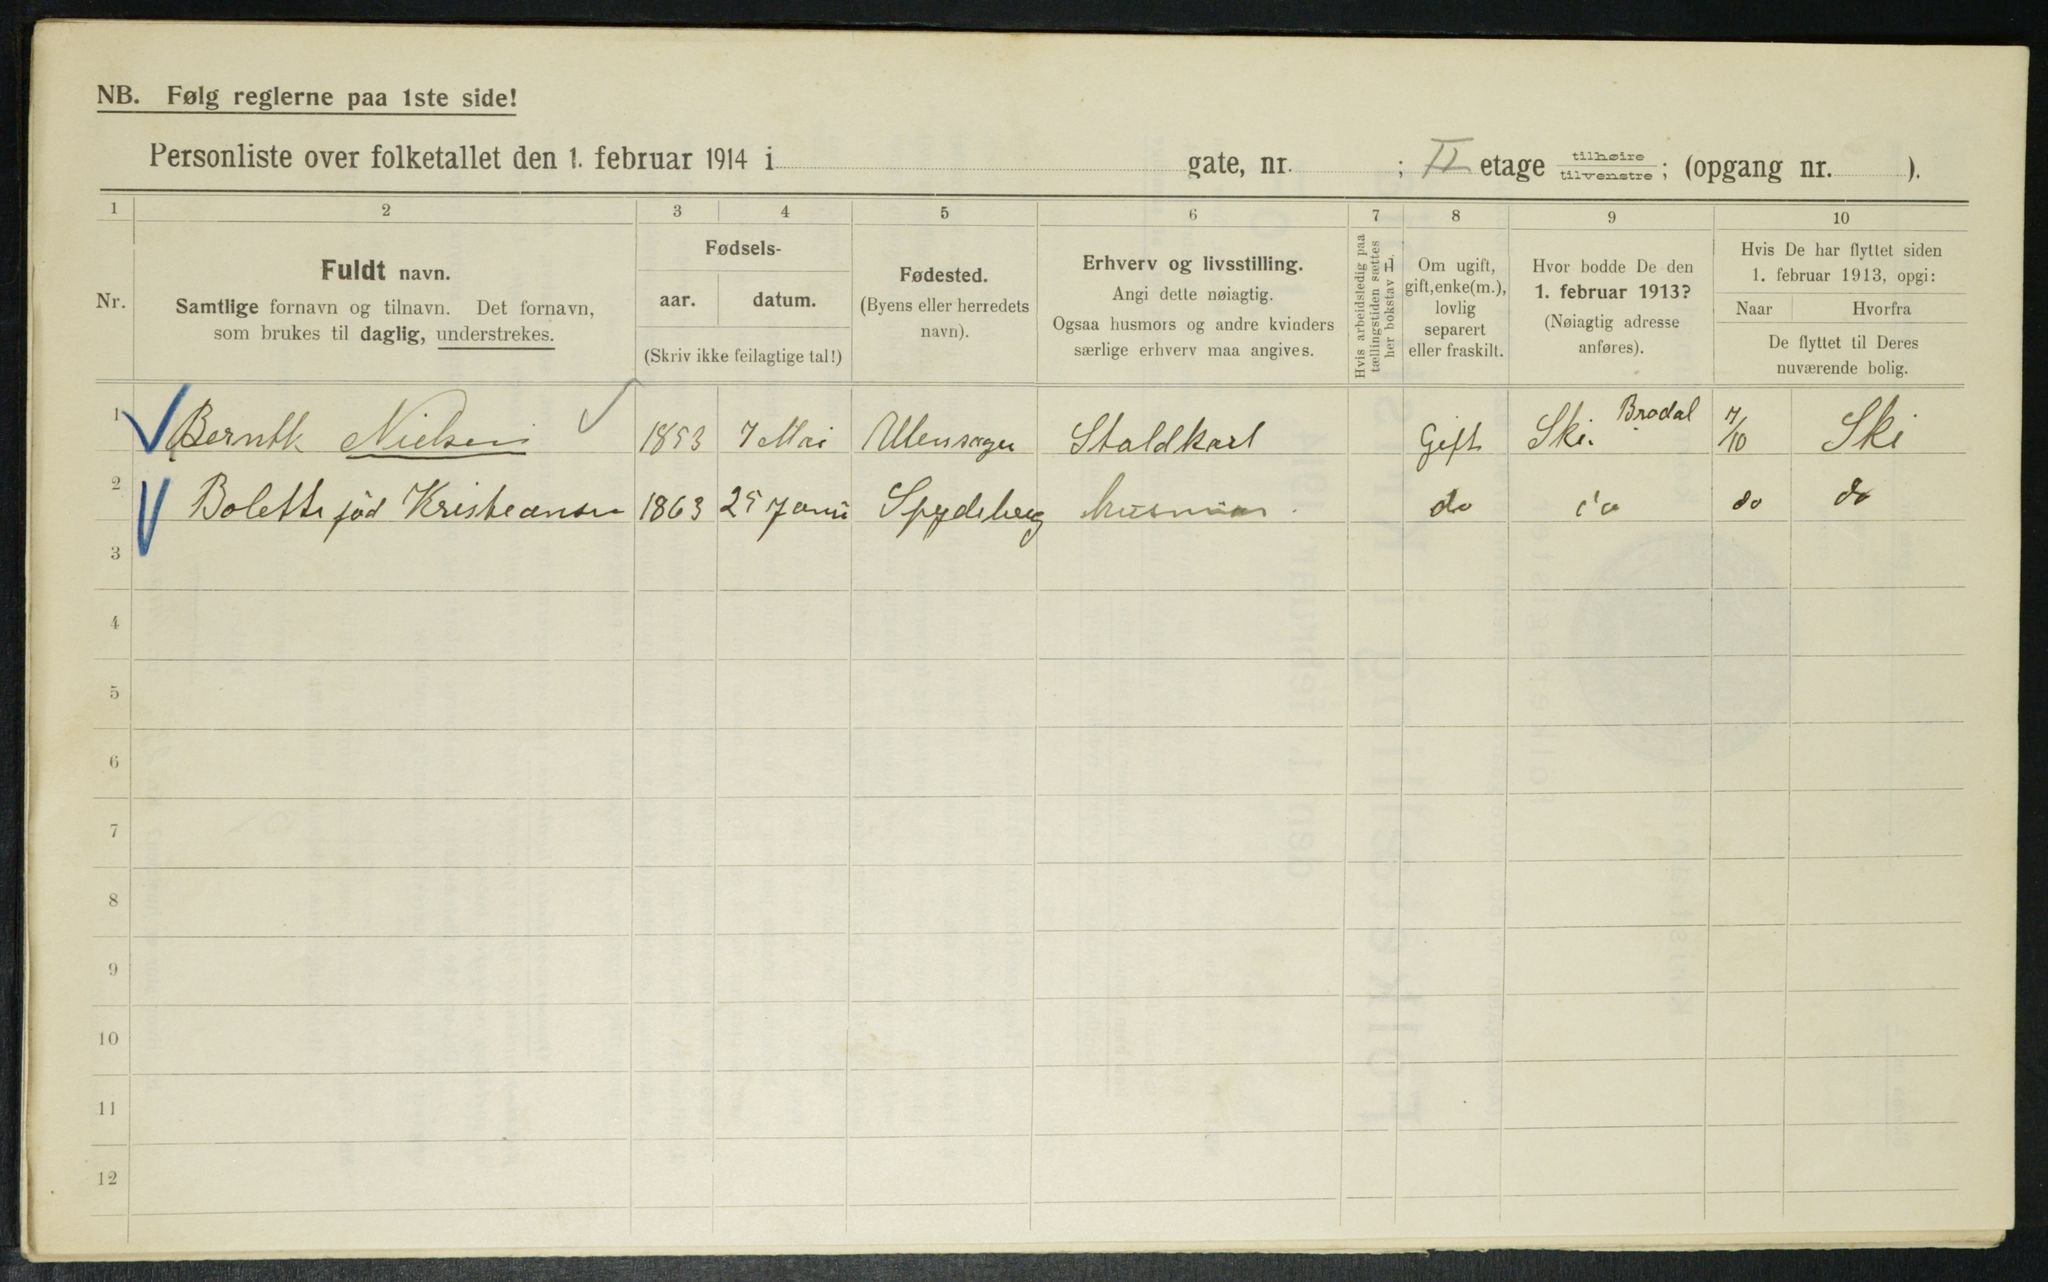 NB. Følg reglerne paa 1ste side!
Personliste over folketallet den 1. februar 1914 i gate, nr. ; II etage tilhøire tilvenstre; (opgang nr. ).
1 2 3 4 5 6 7 8 9 10
Nr.
Fuldt navn.
Samtlige fornavn og tilnavn. Det fornavn,
som brukes til daglig, understrekes.
Fødsels-
aar. datum.
(Skriv ikke feilagtige tal!)
Fødested.
(Byens eller herredets
navn).
Erhverv og livsstilling.
Angi dette nøiagtig.
Ogsaa husmors og andre kvinders
særlige erhverv maa angives.
Hvis arbeidsledig paa
tællingstiden sættes
her bokstav L.
Om ugift,
gift, enke(m.),
lovlig
separert
eller fraskilt.
Hvor bodde De den
1. februar 1913?
(Nøiagtig adresse
anføres).
Hvis De har flyttet siden
1. februar 1913, opgi:
Naar Hvorfra
De flyttet til Deres
nuværende bolig.
1 Berntk Nielsen 1853 7 Mai Ullensager Staldkarl Gift Ski. Brodal 7/10 Ski
2 Bolette fød Kristiansen 1863 25 Spydeberg husmor do do do do
3
4
5
6
7
8
9
10
11
12